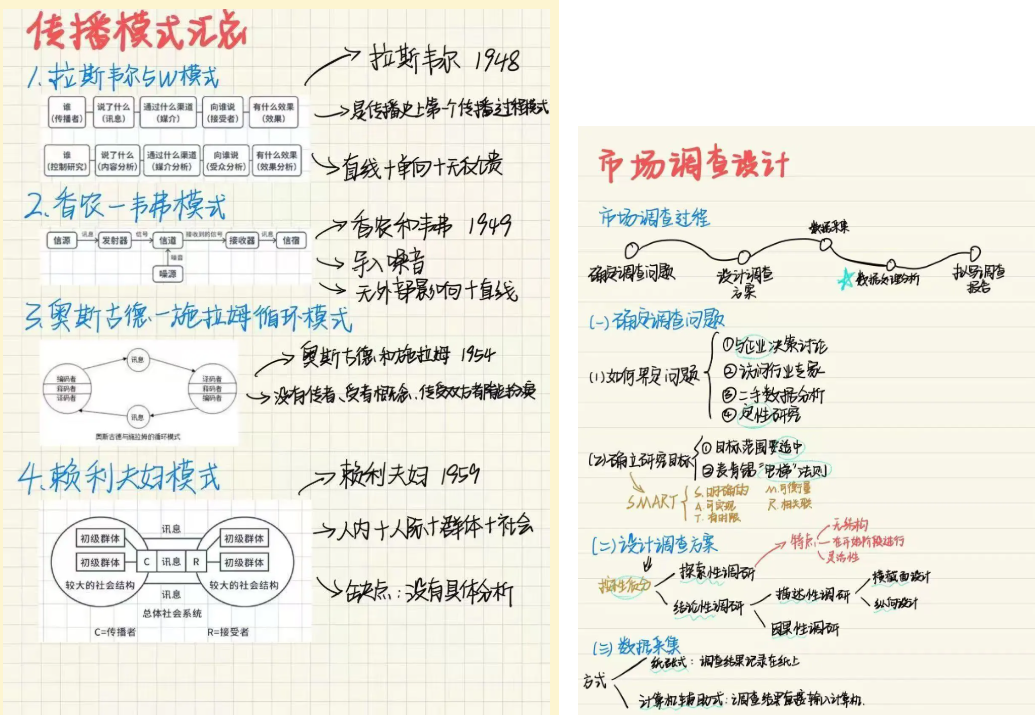 传播模式汇总
1.拉斯韦尔5W模式
拉斯韦尔 1948
谁 说了什么 通过什么渠道 向谁说 有什么效果
(传播者) (讯息) (媒介) (接受者) (效果)
是传播史上第一个传播过程模式
谁 说了什么 通过什么渠道 向谁说 有什么效果
(控制研究) (内容分析) (媒介分析) (受众分析) (效果分析)
直线+单向+无反馈
2.香农一韦弗模式
香农和韦弗 1949
信源 讯息 发射器 信号 信道 接收到的信号 接收器 讯息 信宿
噪音
噪源
导入噪音
无外部影响+直线
3.奥斯古德一施拉姆循环模式
奥斯古德和施拉姆 1954
讯息
编码者 译码者
释码者 释码者
译码者 编码者
讯息
奥斯古德与施拉姆的循环模式
没有传者、受者概念、传受双方者都能扮演
4.赖利夫妇模式
赖利夫妇 1959
讯息
初级群体 初级群体
C 讯息 R
初级群体 初级群体
较大的社会结构 较大的社会结构
讯息
总体社会系统
C=传播者 R=接受者
人内+人际+群体+社会
缺点：没有具体分析
市场调查设计
市场调查过程
数据采集
确定调查问题 设计调查方案 数据处理分析 拟写调查报告
(一)确定调查问题
(1)如何界定问题
①与企业决策讨论
②访问行业专家
③二手数据分析
④定性研究
(2)确立研究目标
①目标范围要适中
SMART
S.明确的 M.可衡量
A.可实现 R.相关联
T.有时限
(二)设计调查方案
特点
无结构
在开始阶段进行
灵活性
探索性调研
结论性调研
描述性调研
横截面设计
纵向设计
因果性调研
(三)数据采集
方式
纸张式：调查结果记录在纸上
计算机辅助式：调查结果直接输入计算机.